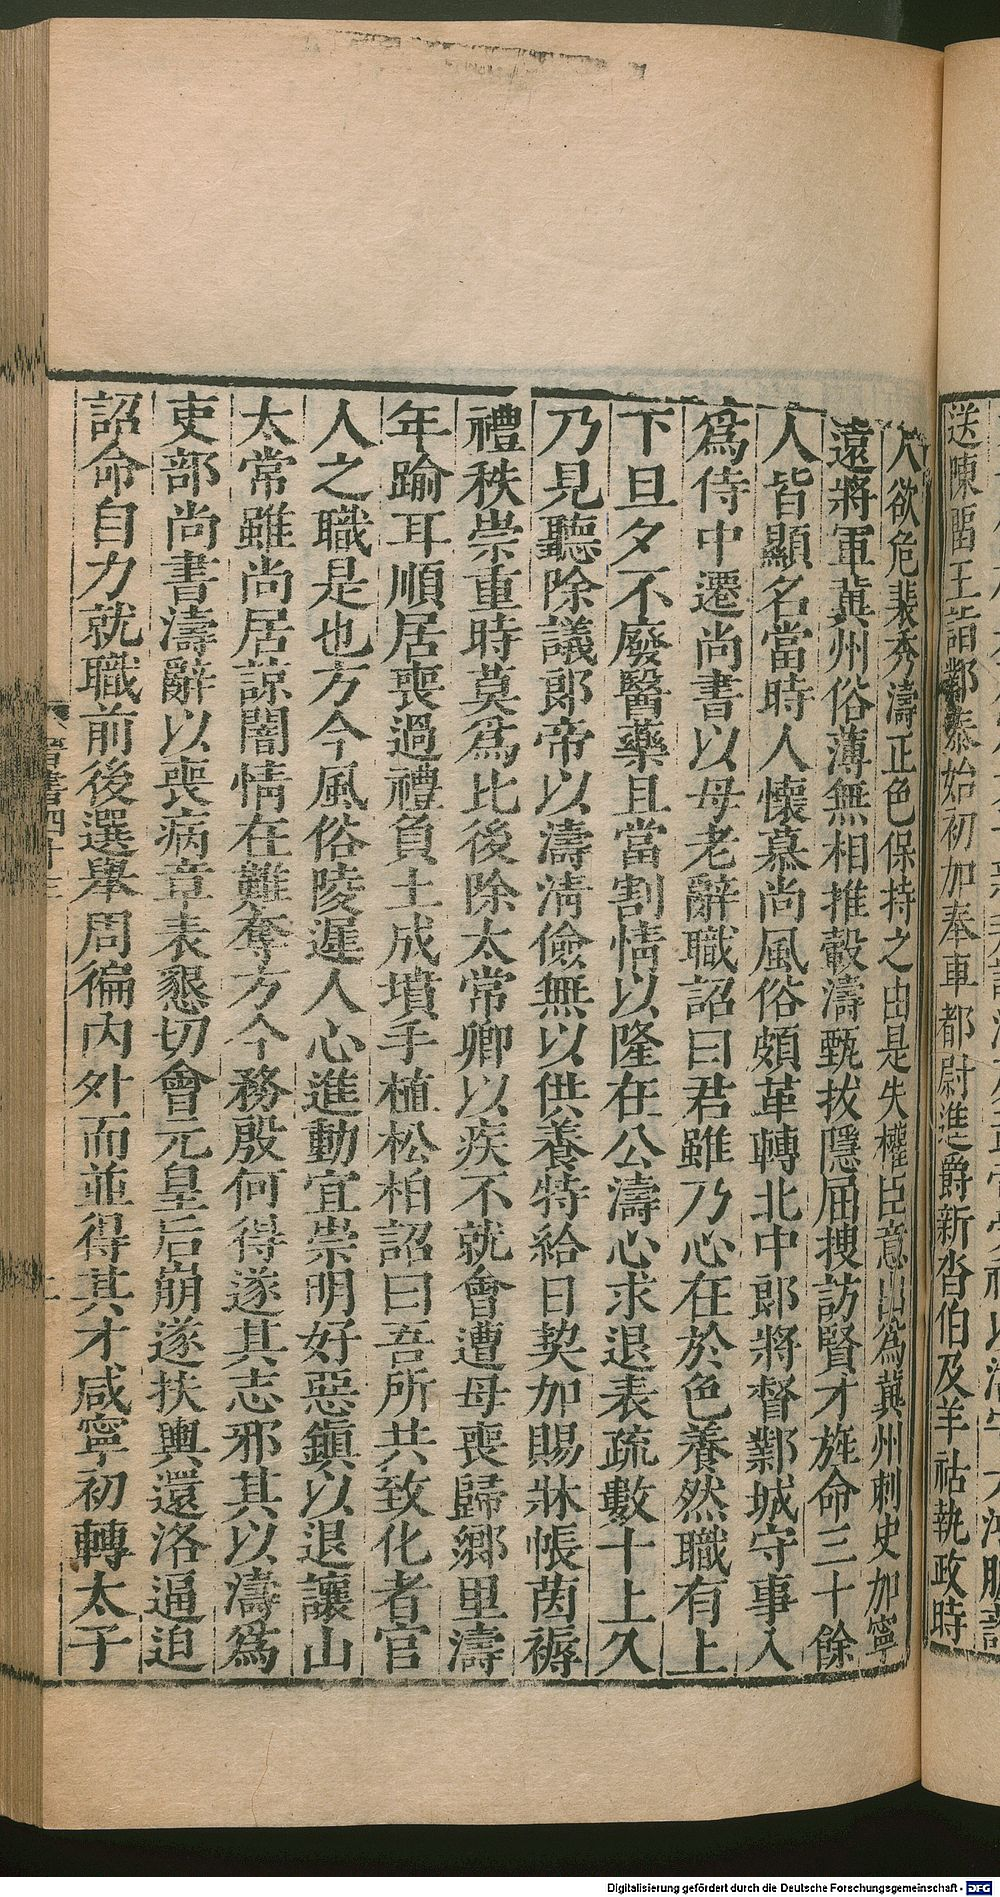 送陳留王詣鄴泰始初加奉車都尉進爵新沓伯及羊祜執政時
人欲危裴秀濤正色保持之由是失權臣意出為冀州刺史加寧
遠將軍冀州俗薄無相推轂濤甄拔隱屈搜訪賢才旌命三十餘
人皆顯名當時人懷慕尚風俗頗革轉北中郎將督鄴城守事入
爲侍中遷尚書以母老辭職詔曰君雖乃心在於色養然職有上
下旦夕不廢醫藥且當割情以隆在公濤心求退表疏數十上久
乃見聽除議郎帝以濤淸儉無以供養特給日契加賜牀帳茵褥
禮秩崇重時莫爲比後除太常卿以疾不就會遭母喪歸鄉里濤
年踰耳順居喪過禮負土成墳手植松柏詔曰吾所共致化者官
人之職是也方今風俗陵遲人心進動宜崇明好惡鎭以退讓山
太常雖尚居諒闇情在難奪方今務殷何得遂其志邪其以濤爲
吏部尚書濤辭以喪病章表懇切會元皇后崩遂扶輿還洛逼迫
詔命自力就職前後選舉周徧內外而並得其才咸寧初轉太子
晉書四十三
Digitalisierung gefördert durch die Deutsche Forschungsgemeinschaft - DFG